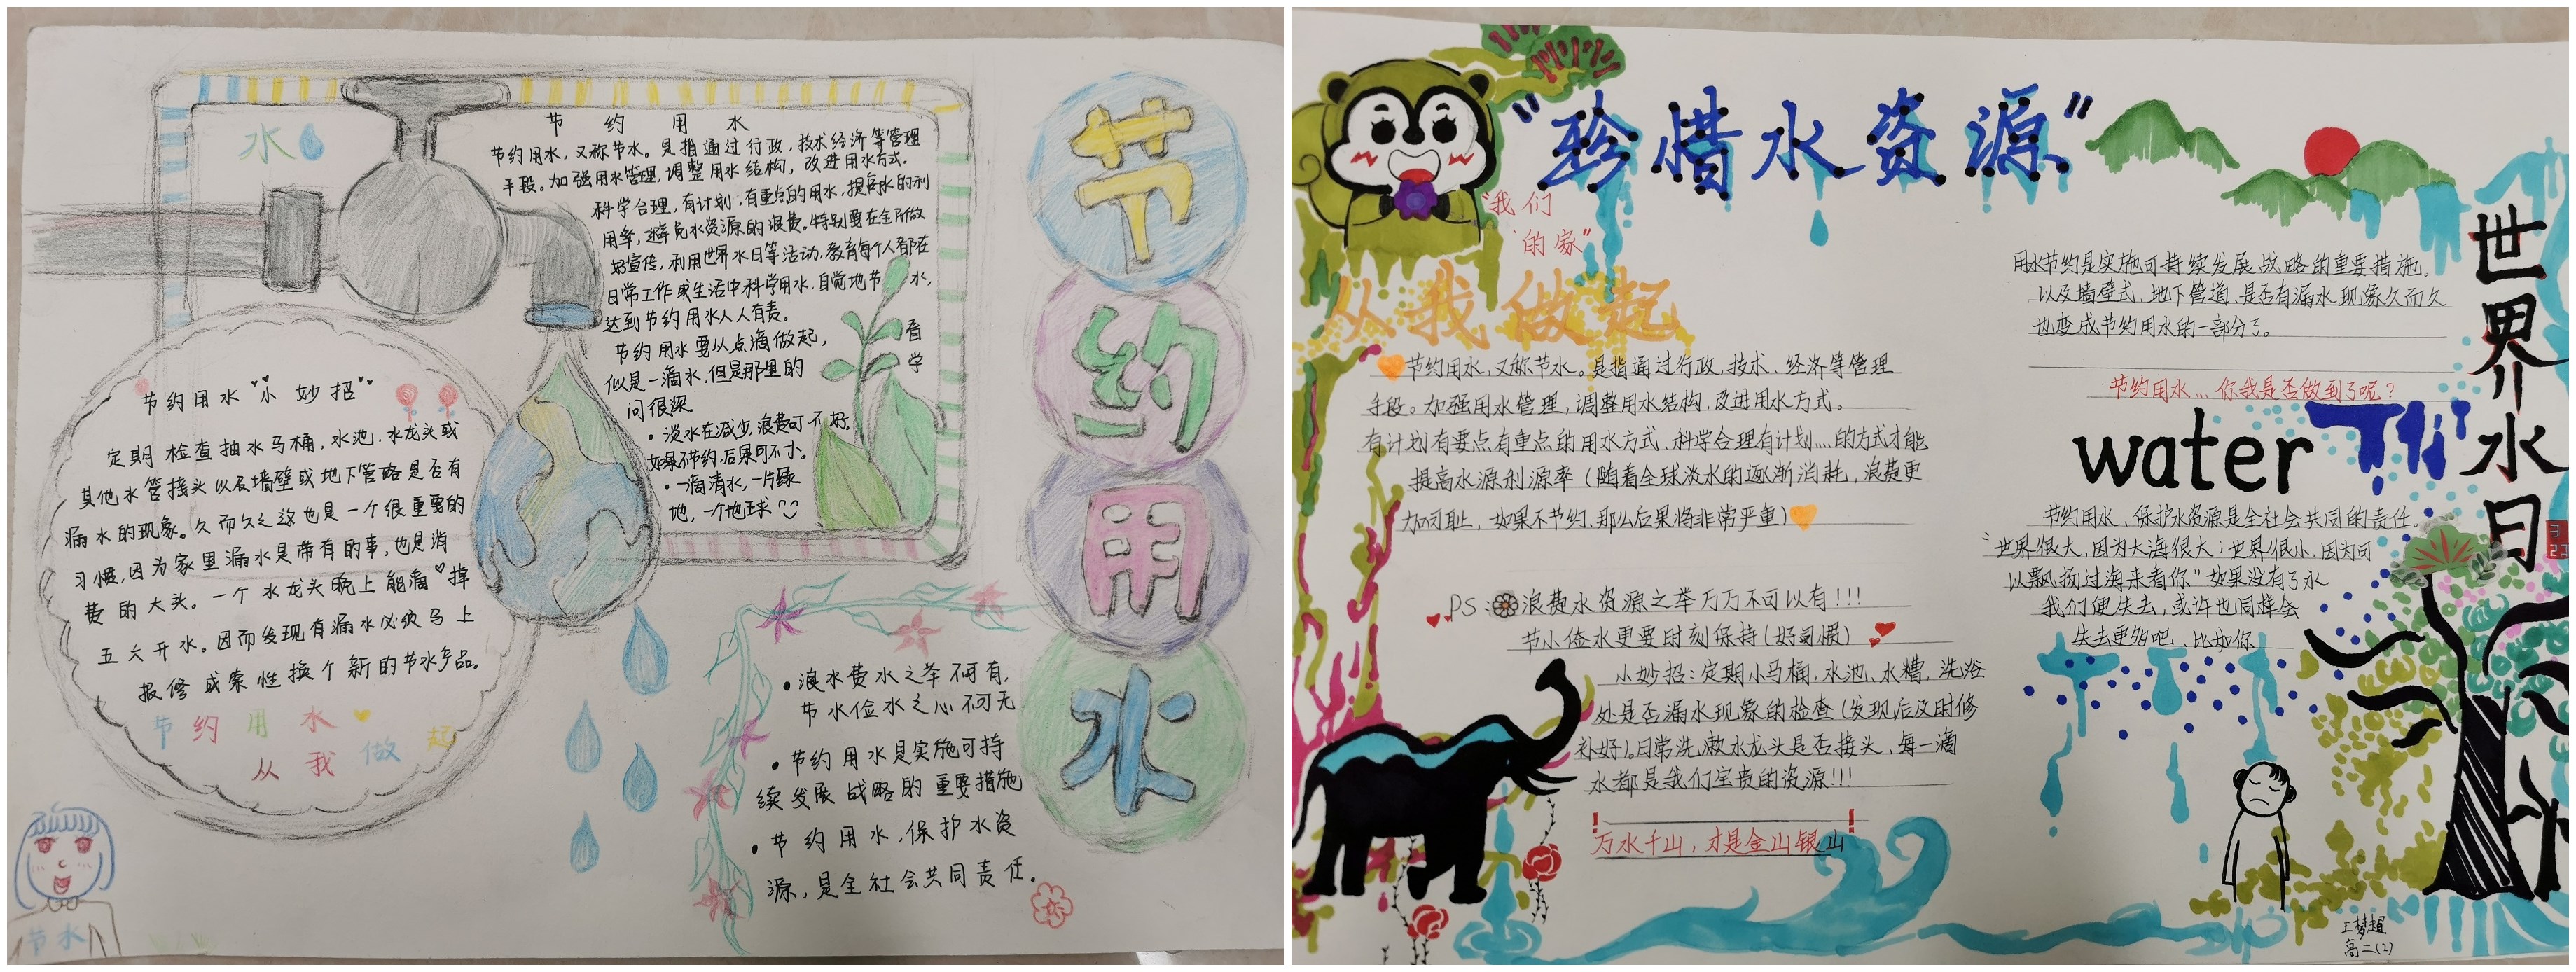 水
节约用水
节约用水，又称节水。是指通过行政，技术经济等管理
手段。加强用水管理，调整用水结构，改进用水方式。
科学合理，有计划，有重点的用水，提高水的利
用率，避免水资源的浪费。特别要在全所做
好宣传，利用世界水日等活动，教育每个人都在
日常工作或生活中科学用水，自觉地节水，
达到节约用水人人有责。
节约用水要以点滴做起，
似是一滴水，但是那里的
问很深
学
·淡水在减少，浪费可不好。
如果不节约，后果可不小。
·一滴清水，一片绿
地，一个地球
节约用水"小妙招"
定期检查抽水马桶，水池，水龙头或
其他水管接头以及墙壁或地下管略是否有
漏水的现象。久而久之这也是一个很重要的
习惯，因为家里漏水是常有的事，也是消
费的大头。一个水龙头晚上能滴掉
五六斤水。因而发现有漏水必须马上
报修或索性换个新的节水产品。
节约用水
从我做起
节水
节约用水
·浪水费水之举不可有，
节水俭水之心不可无
·节约用水是实施可持
续发展战略的重要措施
·节约用水，保护水资
源，是全社会共同责任。
"珍惜水资源"
"我们
的家"
从我做起
节约用水，又称节水。是指通过行政，技术、经济等管理
手段。加强用水管理，调整用水结构，改进用水方式。
有计划有要点有重点的用水方式，科学合理有计划....的方式才能
提高水源利源率（随着全球淡水的逐渐消耗，浪费更
加可耻，如果不节约，那么后果将非常严重）
PS：浪费水资源之举万万不可以有!!!
节小俭水更要时刻保持（好习惯）
小妙招：定期小马桶，水池、水槽，洗浴
处是否漏水现象的检查（发现后及时修
补好）。日常洗漱水龙头是否接头，每一滴
水都是我们宝贵的资源!!!
万水千山，才是金山银山
世界水日
用水节约是实施可持续发展战略的重要措施。
以及墙壁式，地下管道，是否有漏水现象久而久
也变成节约用水的一部分了。
节约用水...你我是否做到了呢？
water
节约用水、保护水资源是全社会共同的责任。
"世界很大，因为大海很大；世界很小，因为可
以飘扬过海来看你"如果没有了水
我们便失去，或许也同样会
失去更多吧，比如你
王梦超
高二(2)